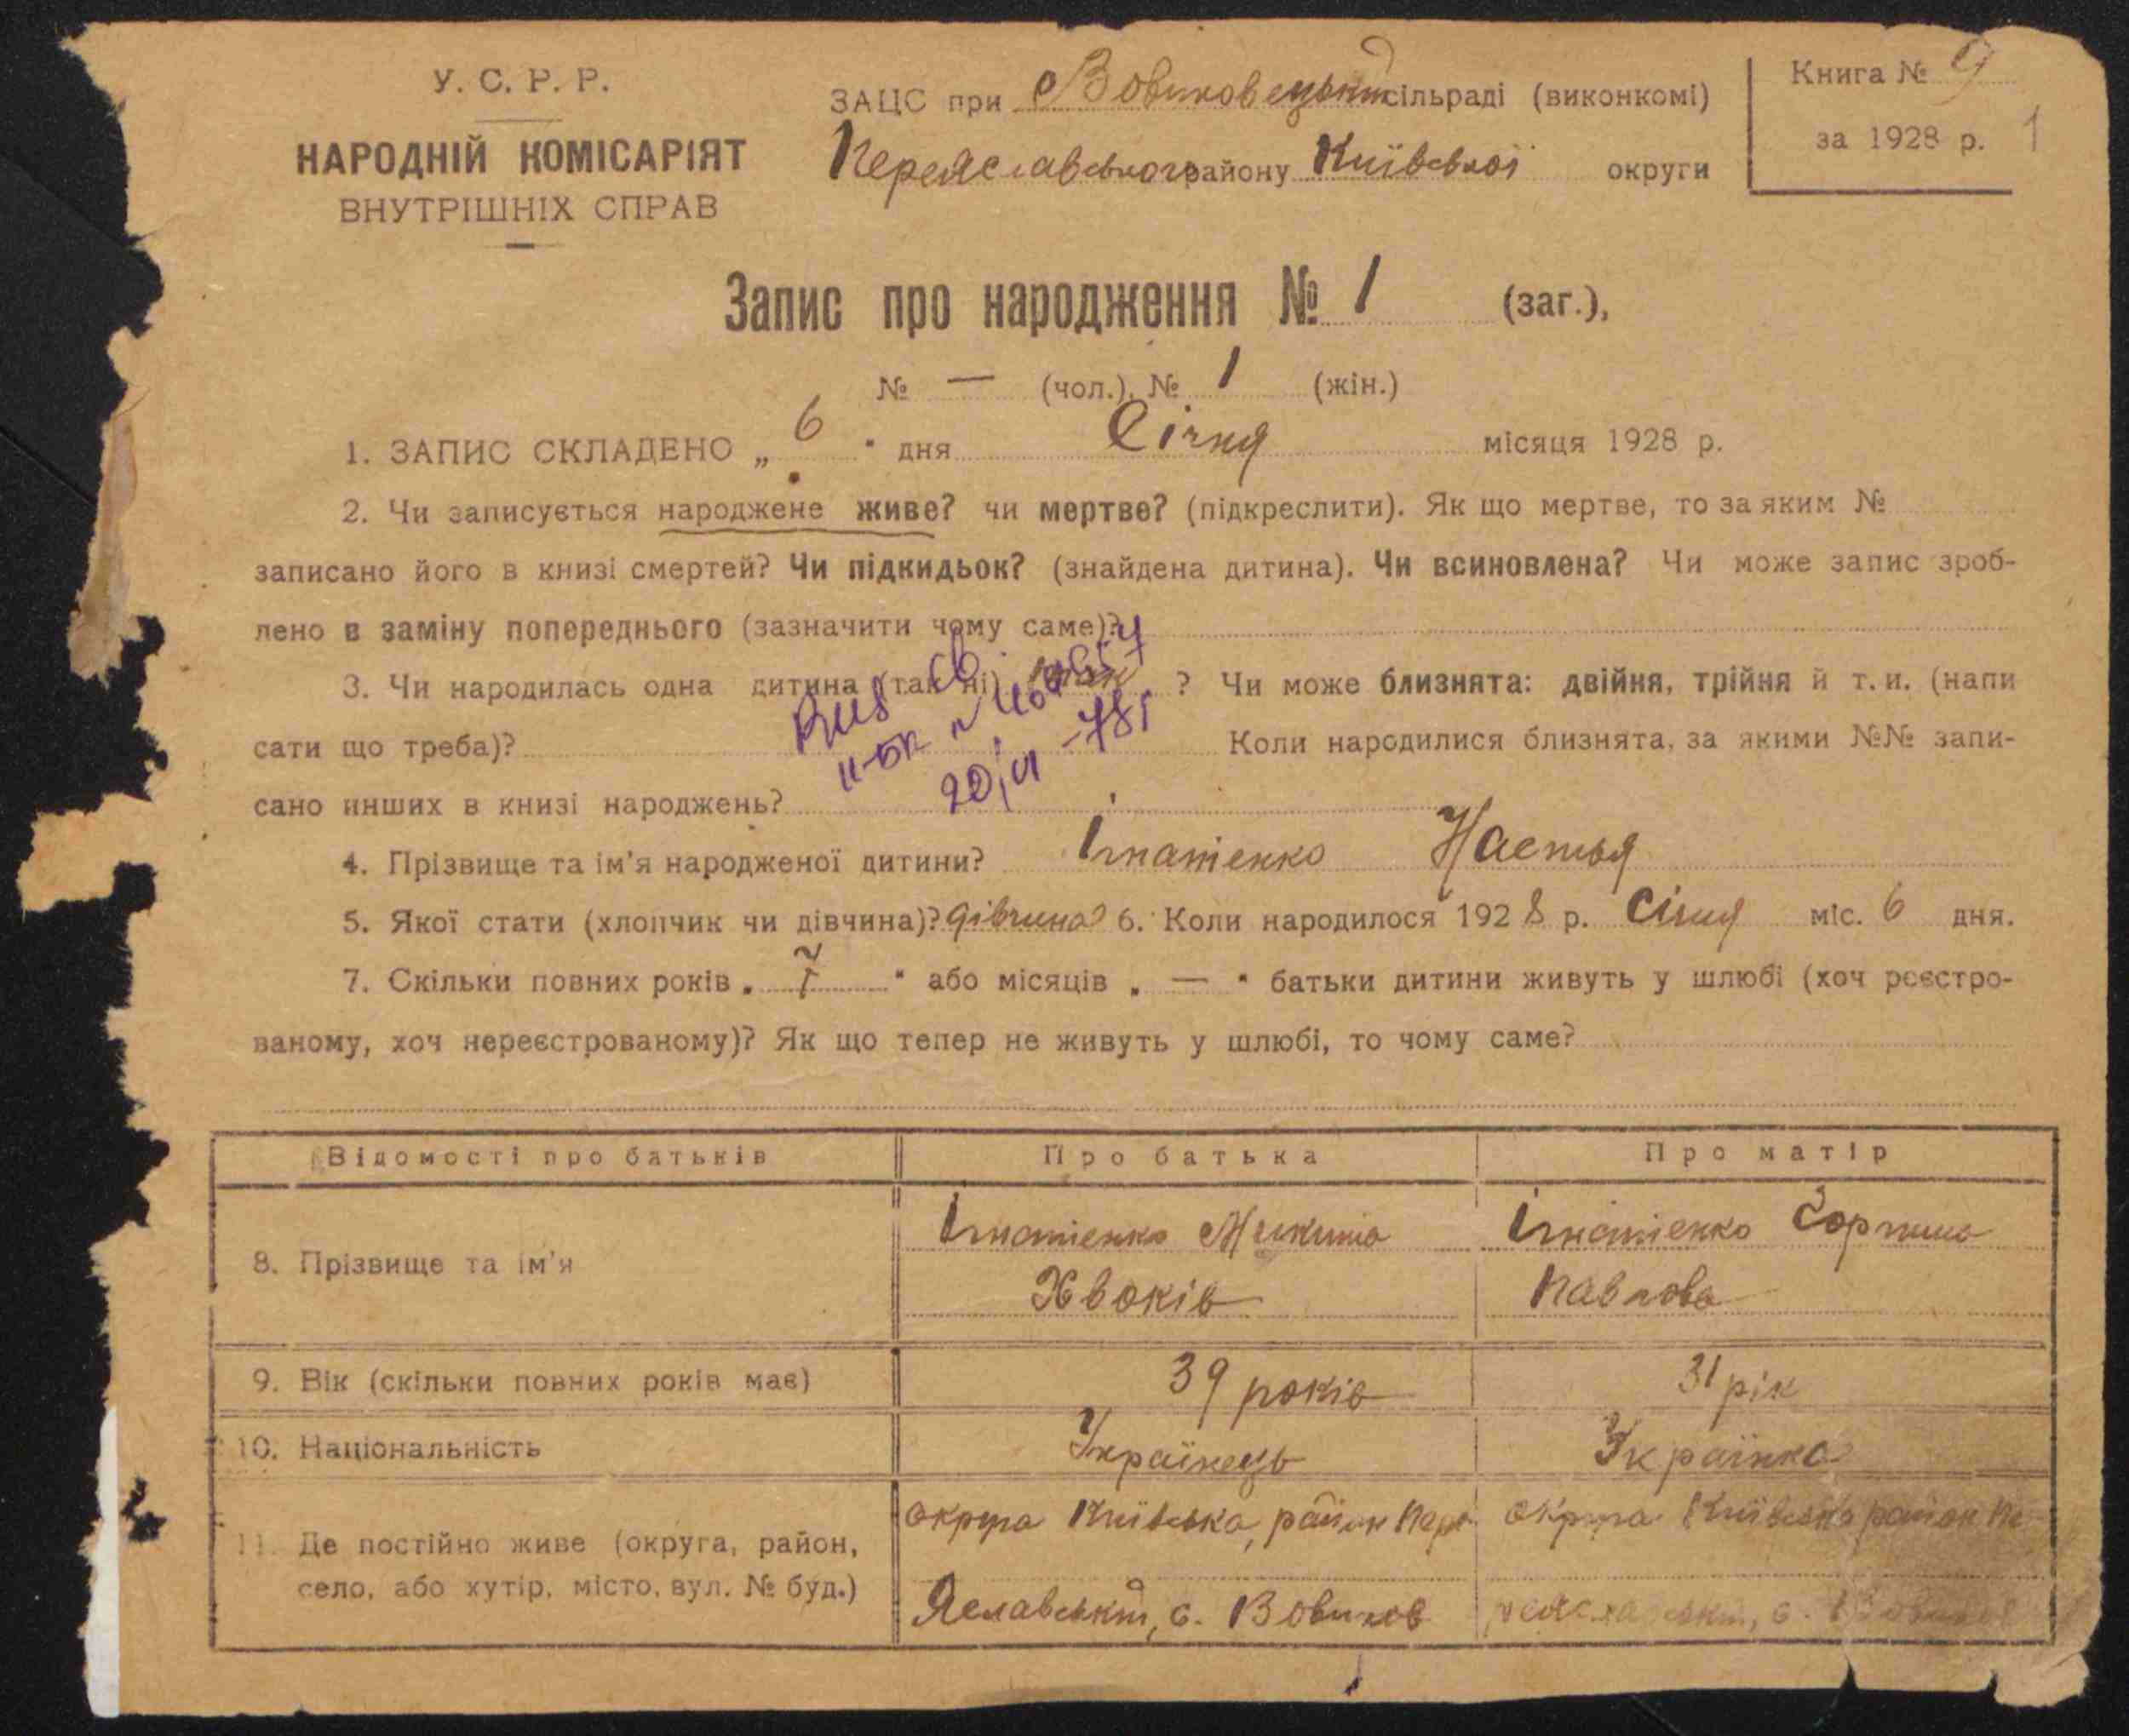 У. С. Р. Р.
НАРОДНІЙ КОМІСАРІЯТ
ВНУТРІШНІХ СПРАВ
ЗАЦС при Вовчковецький сільраді (виконкомі)
Переяславського району Київської округи
Книга № 9
за 1928 р. 1
Запис про народження № 1 (заг.),
№ — (чол.), № 1 (жін.)
1. ЗАПИС СКЛАДЕНО „ 6 " дня Січня місяця 1928 р.
2. Чи записується народжене живе? чи мертве? (підкреслити). Як що мертве, то за яким №
записано його в книзі смертей? Чи підкидьок? (знайдена дитина). Чи всиновлена? Чи може запис зроб-
лено в заміну попереднього (зазначити чому саме)?
3. Чи народилась одна дитина (так ні) ? Чи може близнята: двійня, трійня й т. и. (напи
сати що треба)? Коли народилися близнята, за якими №№ запи-
сано инших в книзі народжень?
4. Прізвище та ім'я народженої дитини? Ігнатієнко Настья
5. Якої стати (хлопчик чи дівчина)? дівчина 6. Коли народилося 1928 р. Січня міс. 6 дня.
7. Скільки повних років „ 7 " або місяців „ — " батьки дитини живуть у шлюбі (хоч реєстро-
ваному, хоч нереєстрованому)? Як що тепер не живуть у шлюбі, то чому саме?
Відомості про батьків Про батька Про матір
8. Прізвище та ім'я
Ігнатієнко Микита
Хвоків
Ігнатієнко Горпина
Павлова
9. Вік (скільки повних років має) 39 років 31 рік
10. Національність Українець Українка
11. Де постійно живе (округа, район,
село, або хутір, місто, вул. № буд.)
округа Київська, район Пере
Яславський, с. Вовчков
округа Київська район Пе
реяславський, с. Вовчков